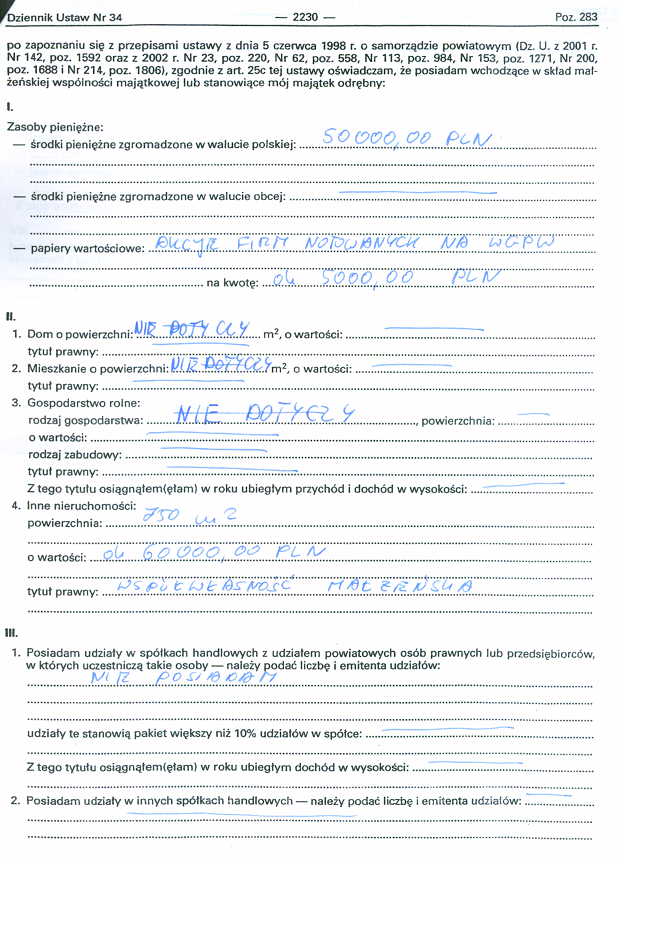 Dziennik Ustaw Nr 34 — 2230 — Poz. 283
po zapoznaniu się z przepisami ustawy z dnia 5 czerwca 1998 r. o samorządzie powiatowym (Dz. U. z 2001 r.
Nr 142, poz. 1592 oraz z 2002 r. Nr 23, poz. 220, Nr 62, poz. 558, Nr 113, poz. 984, Nr 153, poz. 1271, Nr 200,
poz. 1688 i Nr 214, poz. 1806), zgodnie z art. 25c tej ustawy oświadczam, że posiadam wchodzące w skład mał-
żeńskiej wspólności majątkowej lub stanowiące mój majątek odrębny:
I.
Zasoby pieniężne:
— środki pieniężne zgromadzone w walucie polskiej: 50000,00 PLN
— środki pieniężne zgromadzone w walucie obcej:
— papiery wartościowe: AKCJE FIRM NOTOWANYCH NA WGPW
na kwotę: ok 5000,00 PLN
II.
1. Dom o powierzchni: NIE DOTYCZY m², o wartości:
tytuł prawny:
2. Mieszkanie o powierzchni: NIE DOTYCZY m², o wartości:
tytuł prawny:
3. Gospodarstwo rolne:
rodzaj gospodarstwa: NIE DOTYCZY, powierzchnia:
o wartości:
rodzaj zabudowy:
tytuł prawny:
Z tego tytułu osiągnąłem(ęłam) w roku ubiegłym przychód i dochód w wysokości:
4. Inne nieruchomości:
powierzchnia: 750 m2
o wartości: ok 60000,00 PLN
tytuł prawny: WSPÓŁWŁASNOŚĆ MAŁŻEŃSKA
III.
1. Posiadam udziały w spółkach handlowych z udziałem powiatowych osób prawnych lub przedsiębiorców,
w których uczestniczą takie osoby — należy podać liczbę i emitenta udziałów:
NIE POSIADAM
udziały te stanowią pakiet większy niż 10% udziałów w spółce:
Z tego tytułu osiągnąłem(ęłam) w roku ubiegłym dochód w wysokości:
2. Posiadam udziały w innych spółkach handlowych — należy podać liczbę i emitenta udziałów: